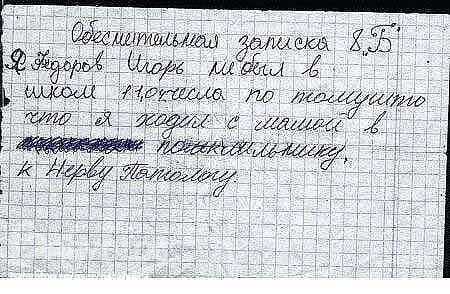 Обеснительная записка 8 „Б"
Я Федоров Игорь не был в
школ 11,0 числа по томушто
что я ходил с мамой в
к Нерву Патологу